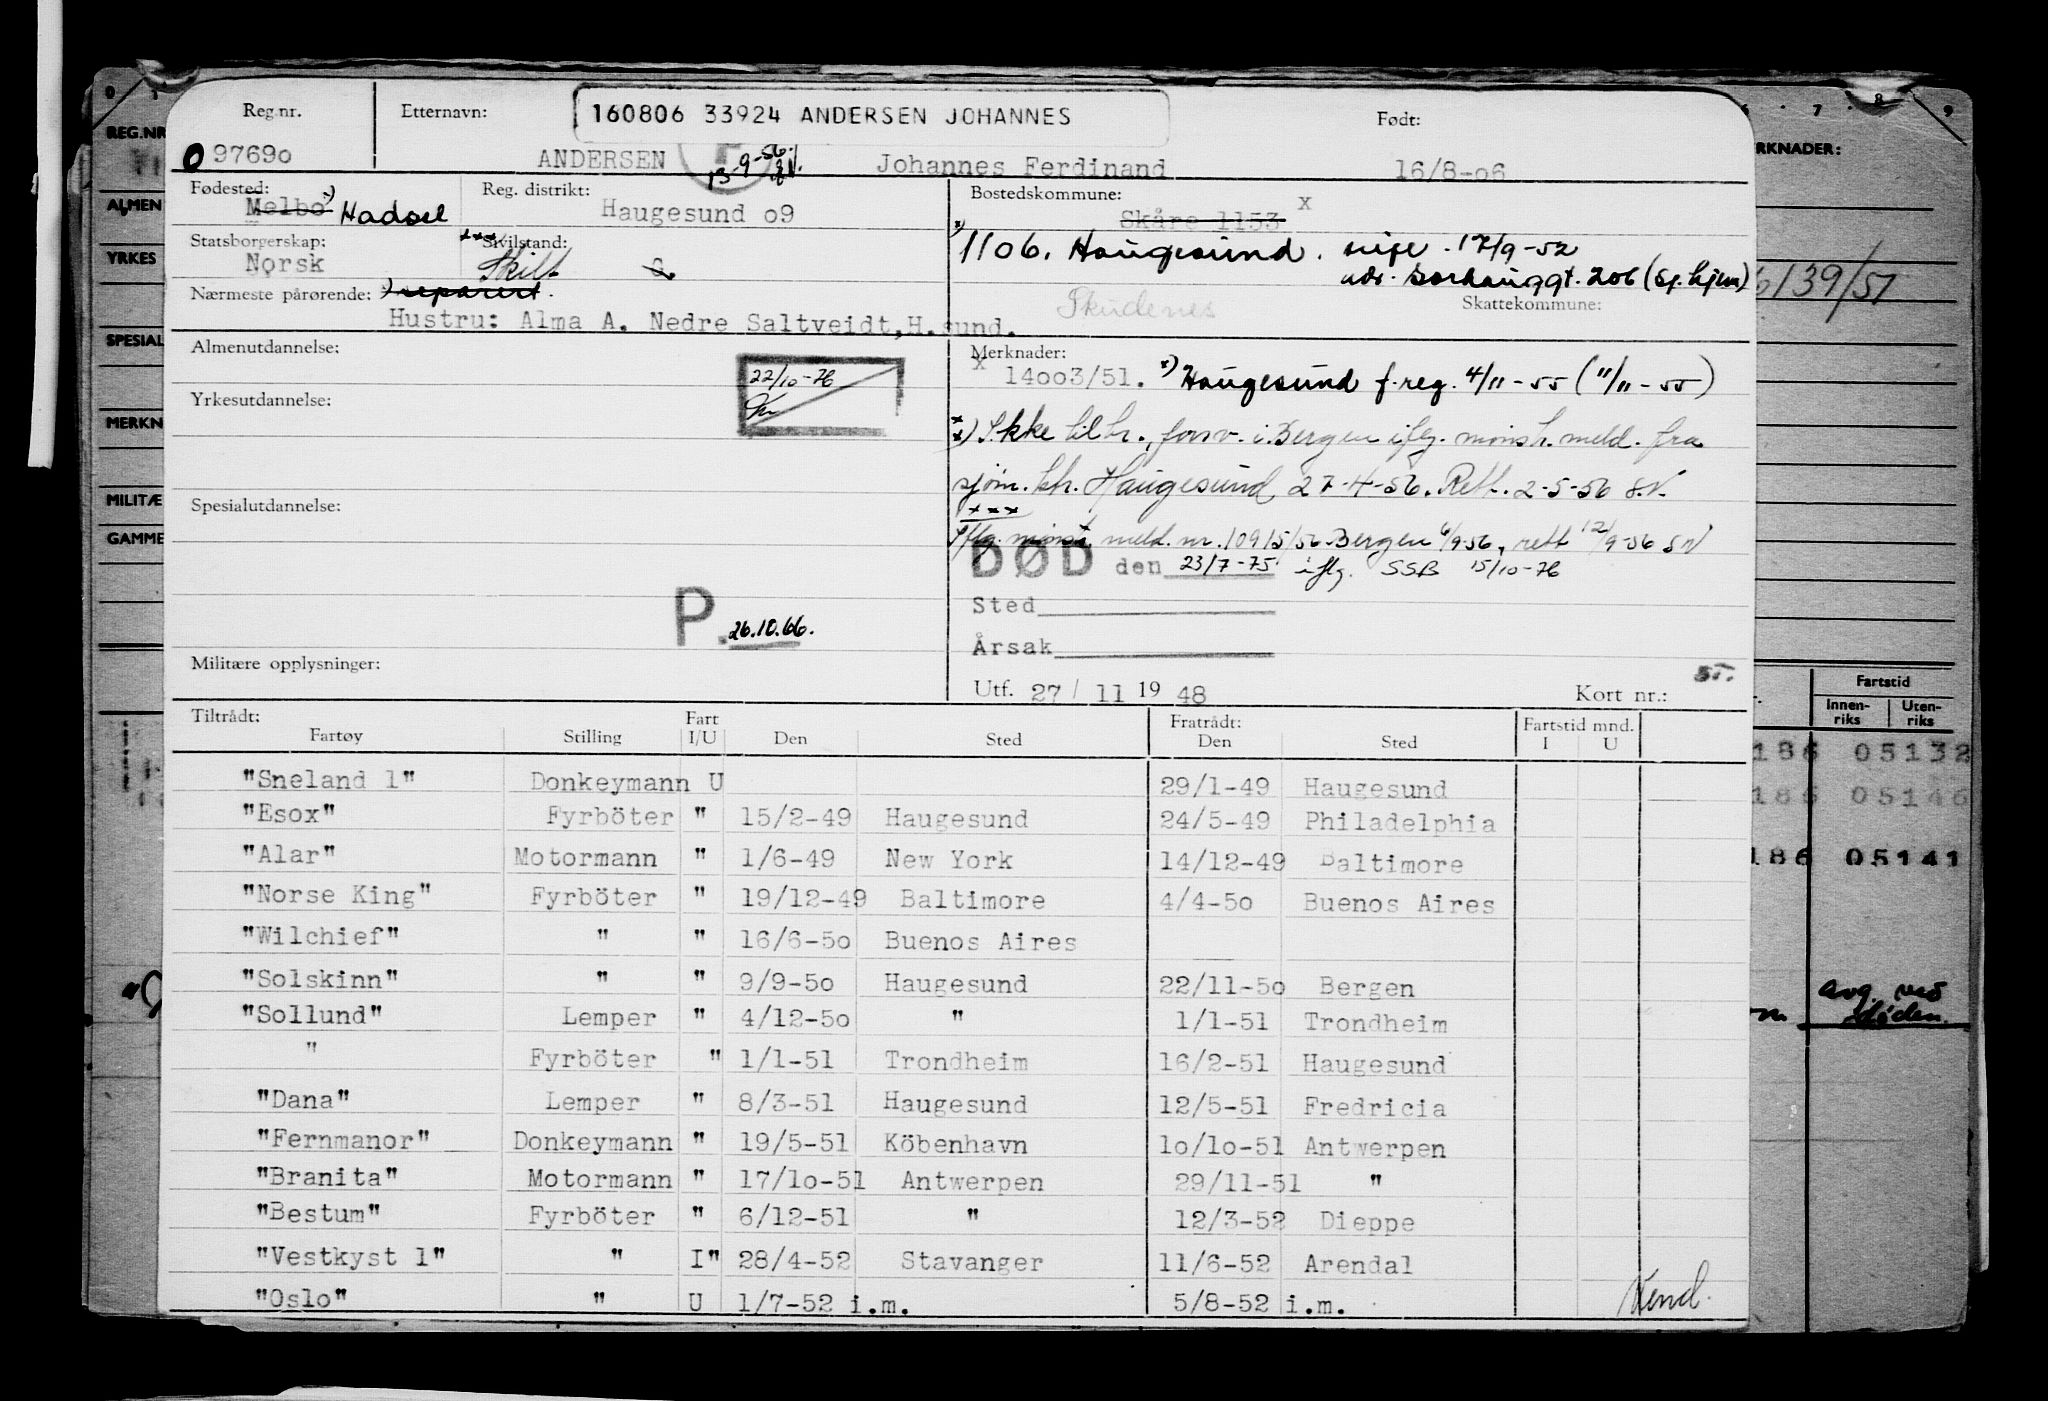 Reg.nr. Etternavn: 160806 33924 ANDERSEN JOHANNES Født:
0 9769o ANDERSEN 13-9-56 Johannes Ferdinand 16/8-o6
Fødested: Reg. distrikt: Bostedskommune:
Melbo x) Hadsel Haugesund o9 Skåre 1153 x
Statsborgerskap: xxx Sivilstand: x) 1106. Haugesund. 17/9-52
Norsk Skilt G.
adr. Sørhauggt. 206 (Sj. hjem)
Nærmeste pårørende: x) separert. Skudenes Skattekommune:
Hustru: Alma A. Nedre Saltveidt,H.sund.
Almenutdannelse: Merknader:
22/10-76 x 14oo3/51. x) Haugesund f.reg. 4/11-55 (11/11-55)
Yrkesutdannelse:
x x) Ikke tilh. forsv. i Bergen iflg. mønstr. meld. fra
sjøm. ktr. Haugesund 27-4-56. Rett. 2-5-56 S.N.
Spesialutdannelse: xxx
Iflg. mønst. meld. nr. 10915/56 Bergen 6/9-56, rett 12/9-56 SN
DØD den 23/7-75 iflg. SSB 15/10-76
Sted
P. 26.10.66.
Årsak
Militære opplysninger:
Utf. 27/ 11 19 48 Kort nr.:
Tiltrådt: Fart Fratrådt: Fartstid mnd.
Fartøy Stilling I/U Den Sted Den Sted I U
"Sneland l" Donkeymann U 29/1-49 Haugesund
"Esox" Fyrböter " 15/2-49 Haugesund 24/5-49 Philadelphia
"Alar" Motormann " 1/6-49 New York 14/12-49 Baltimore
"Norse King" Fyrböter " 19/12-49 Baltimore 4/4-5o Buenos Aires
"Wilchief" " " 16/6-5o Buenos Aires
"Solskinn" " " 9/9-5o Haugesund 22/11-5o Bergen
"Sollund" Lemper " 4/12-5o " 1/1-51 Trondheim
" Fyrböter " 1/1-51 Trondheim 16/2-51 Haugesund
"Dana" Lemper " 8/3-51 Haugesund 12/5-51 Fredricia
"Fernmanor" Donkeymann " 19/5-51 Köbenhavn lo/lo-51 Antwerpen
"Branita" Motormann " 17/lo-51 Antwerpen 29/11-51 "
"Bestum" Fyrböter " 6/12-51 " 12/3-52 Dieppe
"Vestkyst l" " I" 28/4-52 Stavanger 11/6-52 Arendal
"Oslo" " U 1/7-52 i.m. 5/8-52 i.m.
Vend.
REG.NR
ALMEN
YRKES
SPESIAL
MERKN
MILITÆ
GAMME
7 8 9
RKNADER:
139/51
Fartstid
Innen-riks Uten-riks
186 05132
186 05146
186 05141
avg. ved
døden.